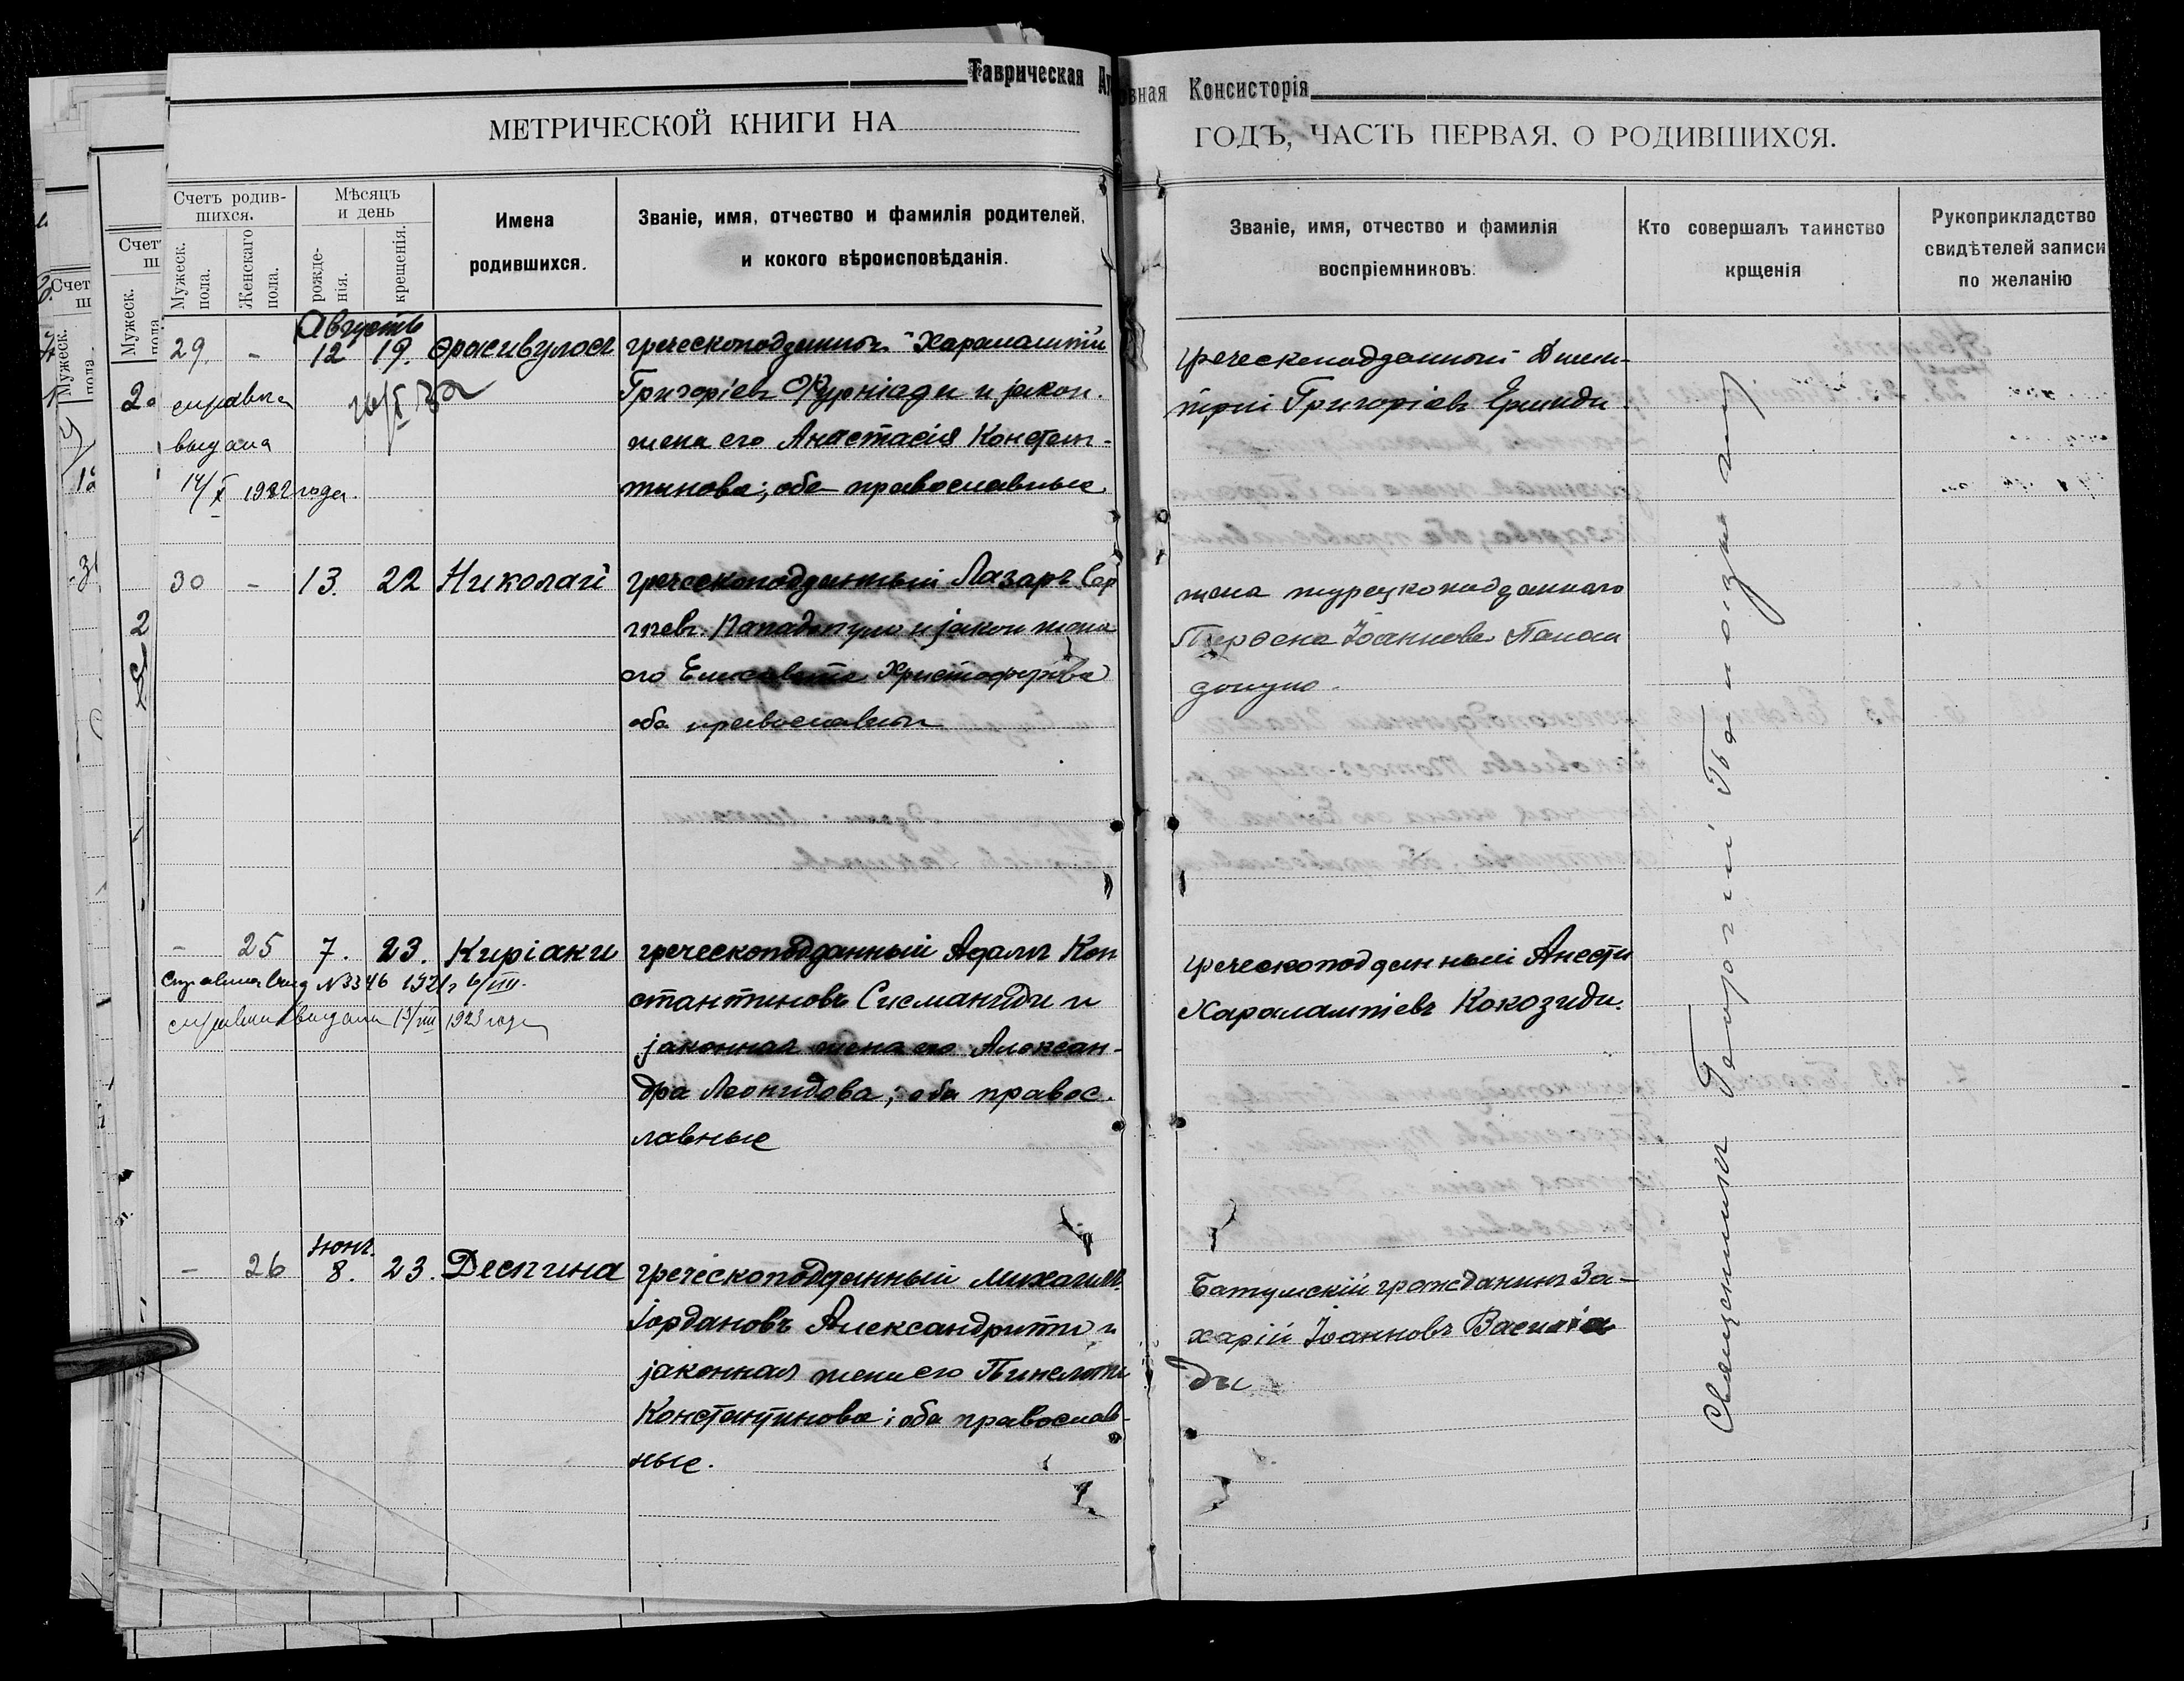 Таврическая
вная Консисторія
МЕТРИЧЕСКОЙ КНИГИ НА
ГОДЪ, ЧАСТЬ ПЕРВАЯ, О РОДИВШИХСЯ.
Счетъ родив-
шихся.
Мужеск.
пола.
Женскаго
пола.
Мѣсяцъ
и день
рожде-
нія.
крещенія.
Имена
родившихся.
Званіе, имя, отчество и фамилія родителей,
и кокого вѣроисповѣданія.
Званіе, имя, отчество и фамилія
воспріемниковъ.
Кто совершалъ таинство
крщенія
Рукоприкладство
свидѣтелей записи
по желанію
Августъ
29. - 12 19. Ѳрасивулосъ
справка
выдана
14/X 1922 года.
греческоподданный Харалампій
Григоріевъ и закон.
жена его Анастасія Констан-
тинова; оба православные.
греческоподданный Дими-
трій Григоріевъ
30 - 13. 22 Николай
греческоподданный Лазарь Сер
гіевъ Пападопуло и закон жена
его Елисавета Христофорова
оба православны
жена турецкоподданнаго
Іоаннова Папа
допуло.
- 25 7. 23. Киріаки
Справка выд N 3346 1921 г 6/VIII.
справка выдана 13/VIII 1923 года
греческоподданный Адамъ Кон
стантиновъ Сисманиди и
законная жена его Алексан-
дра Леонидова; оба правос.
лавные
греческоподданный Анести
Харалампіевъ Кокозиди.
Іюнь.
- 26 8. 23. Деспина
греческоподданный Михаилъ
Іордановъ Александрити и
законная жена его
Константинова; оба православ-
ные.
Батумскій гражданинъ За-
харій Іоанновъ Василіа
ди
Священникъ Георгій